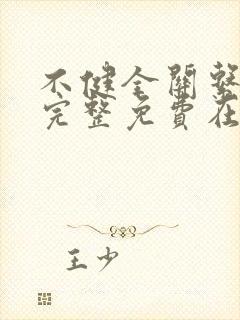 不健全關繫
完整免費在
王少